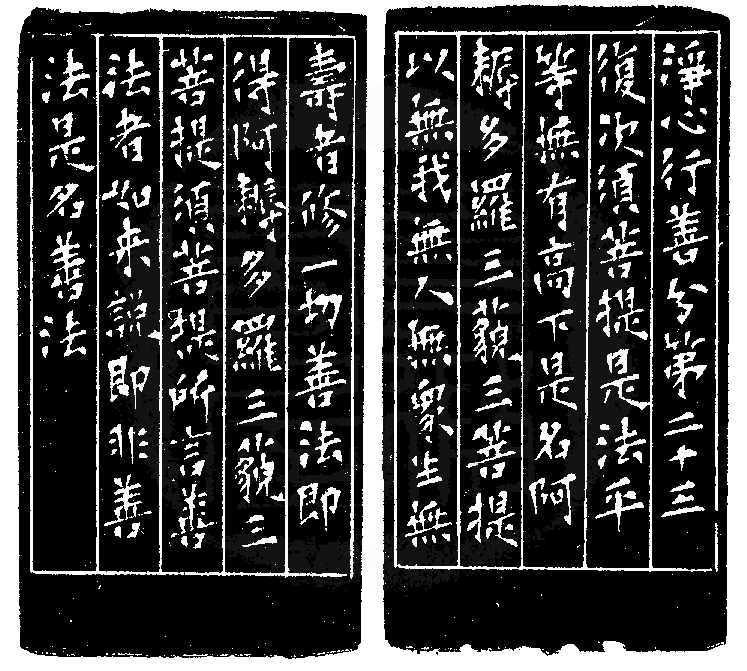 淨心行善分第二十三
復次須菩提是法平
等無有高下是名阿
耨多羅三藐三菩提
以無我無人無衆生無
壽者修一切善法即
得阿耨多羅三藐三
菩提須菩提所言善
法者如来説即非善
法是名善法